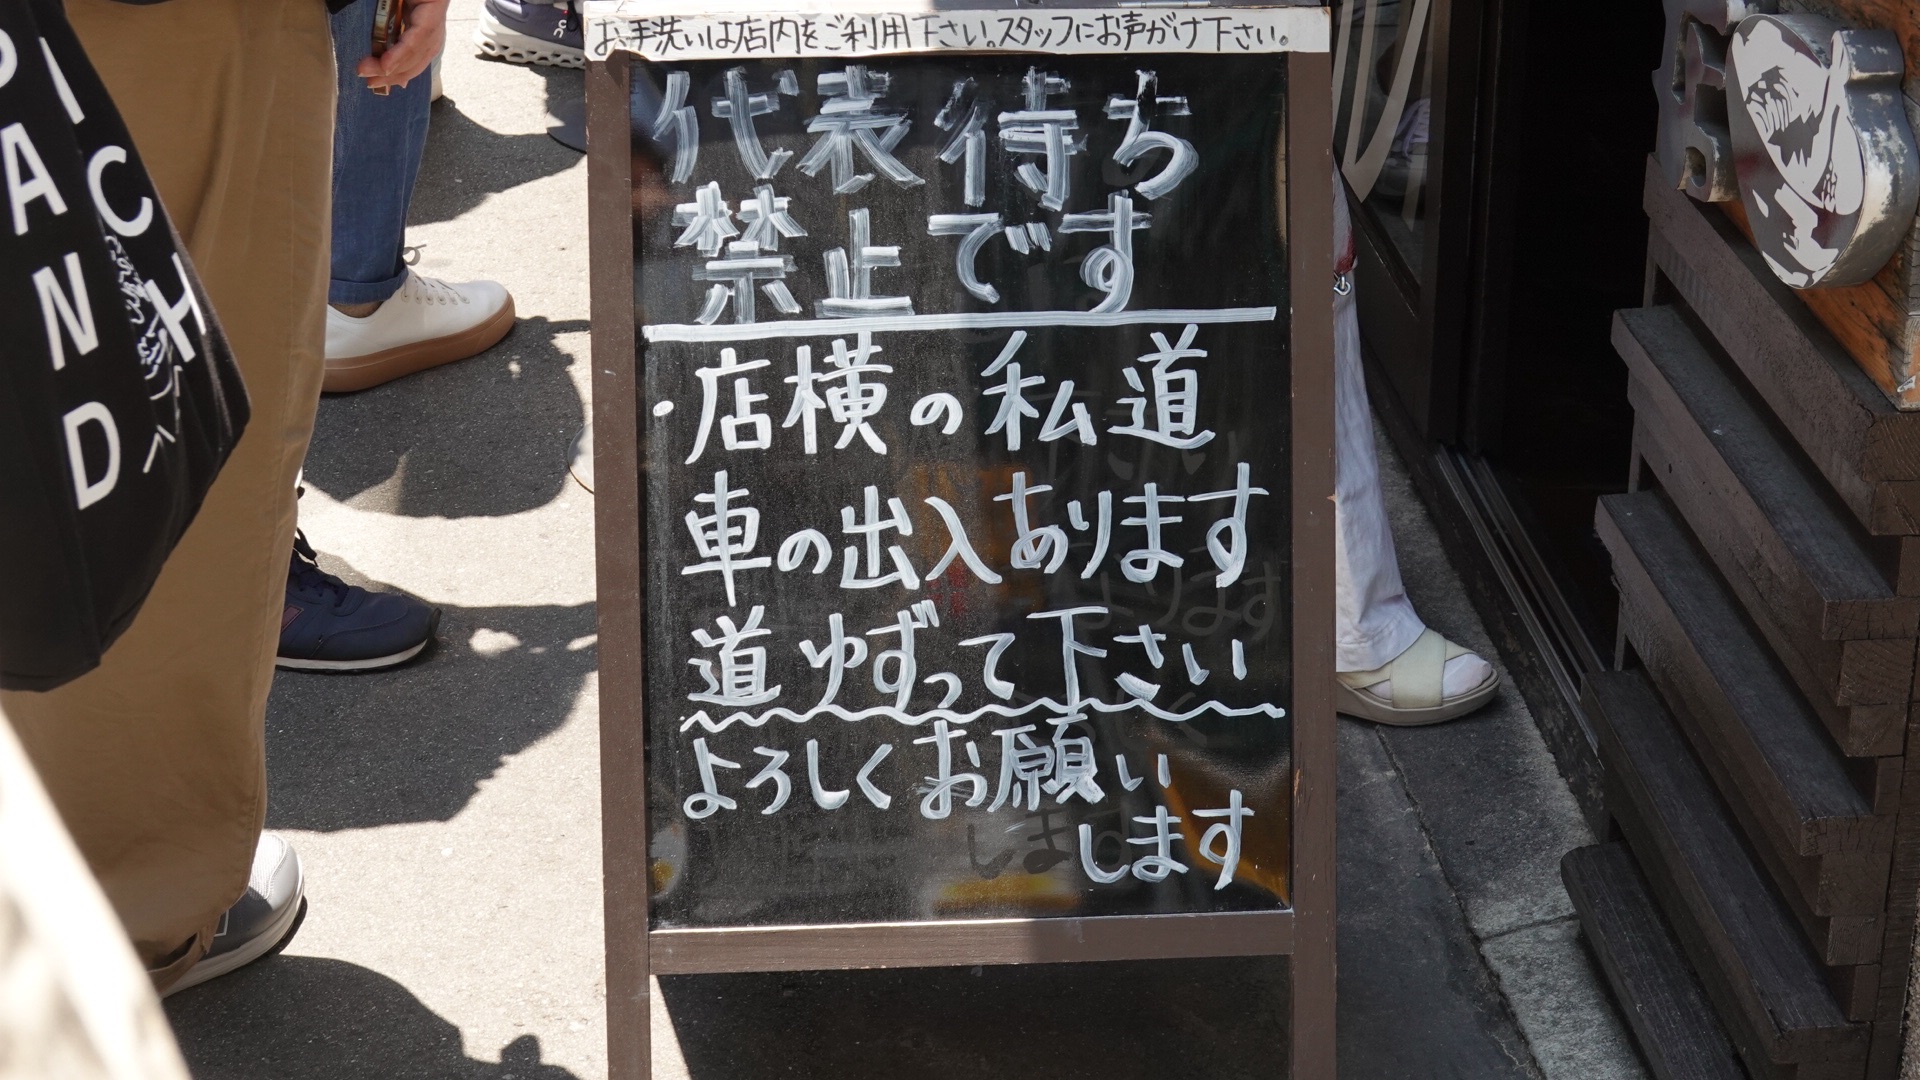 お手洗いは店内をご利用下さい。スタッフにお声がけ下さい。
代表待ち
禁止です
・店横の私道
車の出入あります
道ゆずって下さい
よろしくお願い
します
RICH
SAND